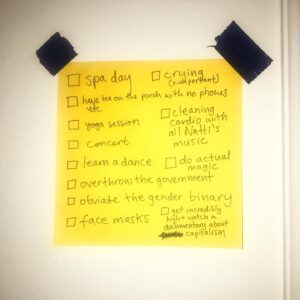 spa day
crying
(v. important)
have tea on the porch with no phones
etc
yoga session
cleaning
cardio with
all Natti's
music
concert
learn a dance
do actual
magic
overthrow the government
obviate the gender binary
face masks
get incredibly
high + watch a
documentary about
capitalism